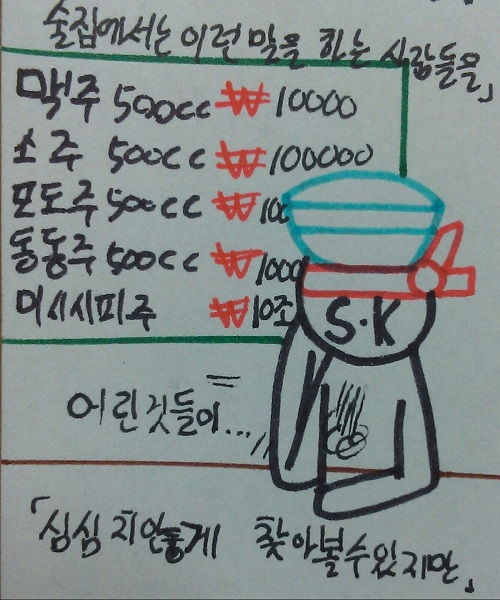 술집에서는 이런 말을 하는 사람들을」
맥주 500cc ₩10000
소주 500cc ₩100000
포도주 500cc ₩100
동동주 500cc ₩1000
미시시피주 ₩10조
S·K
어린것들이...
「심심치 않게 찾아볼수있지만」